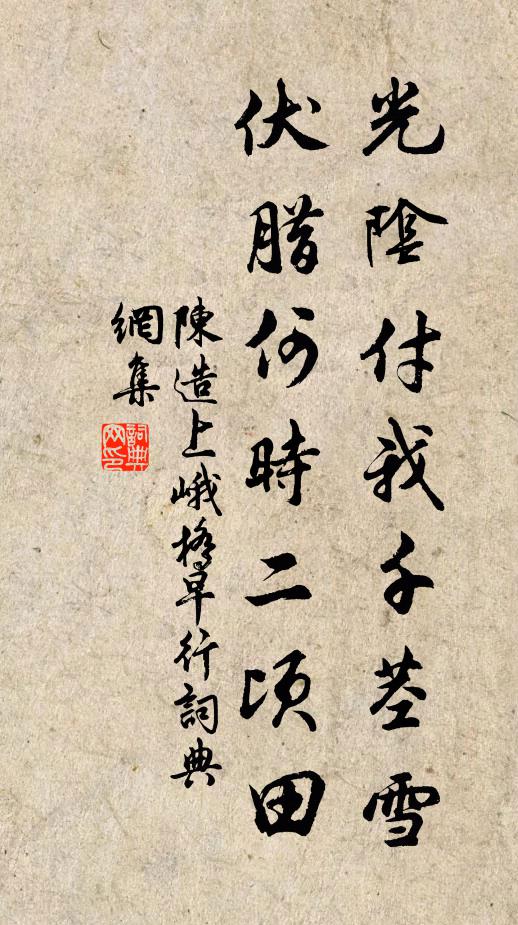 光陰付我千莖雪
伏臘何時二頃田
陳造上峨橋早行詞典
網集
詞典
网印